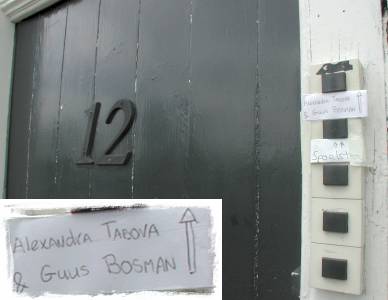 12
Alexandra Tabova
& Guus Bosman
Alexandra Tabova
& Guus Bosman